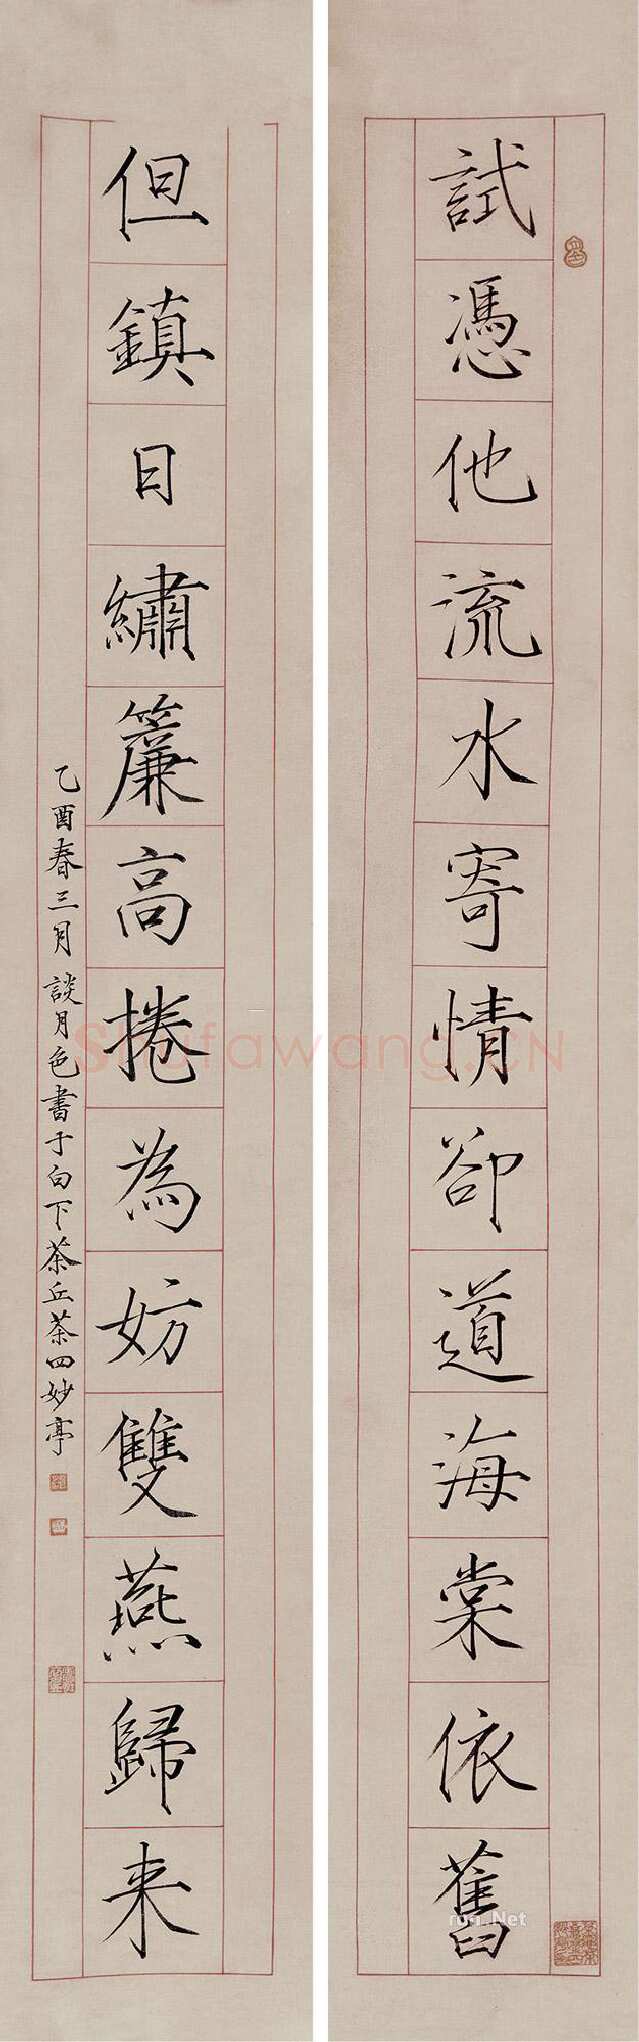 試憑他流水寄情卻道海棠依舊
但鎮日繡簾高捲為妨雙燕歸来
乙酉春三月談月色書于白下茶丘茶四妙亭
Shufawang.CN